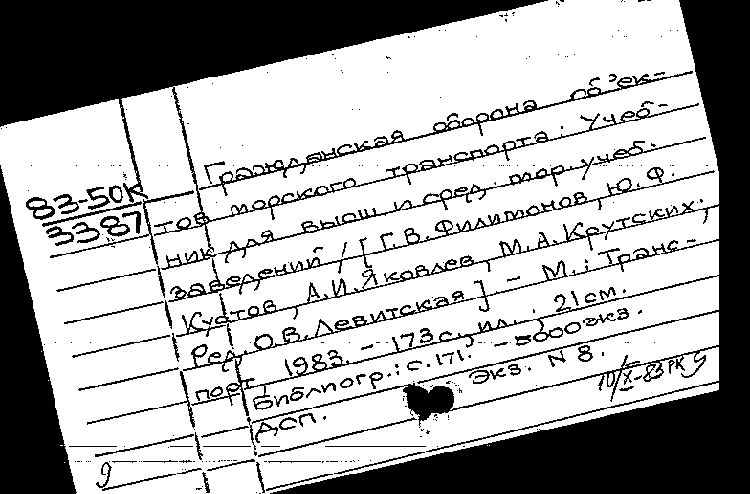 83-50К
3387
Гражданская оборона объек-
тов морского транспорта: Учеб-
ник для высш. и сред. мор. учеб.
заведений / [Г. В. Филимонов, Ю. Ф.
Кустов, А. И. Яковлев, М. А. Крутских;
Ред. О. В. Левитская] - М.: Транс-
порт, 1983. - 173 с., ил.; 21 см.
Библиогр.: с. 171. - 5000 экз.
ДСП. Экз. N 8.
10/X-83 РК 9
9